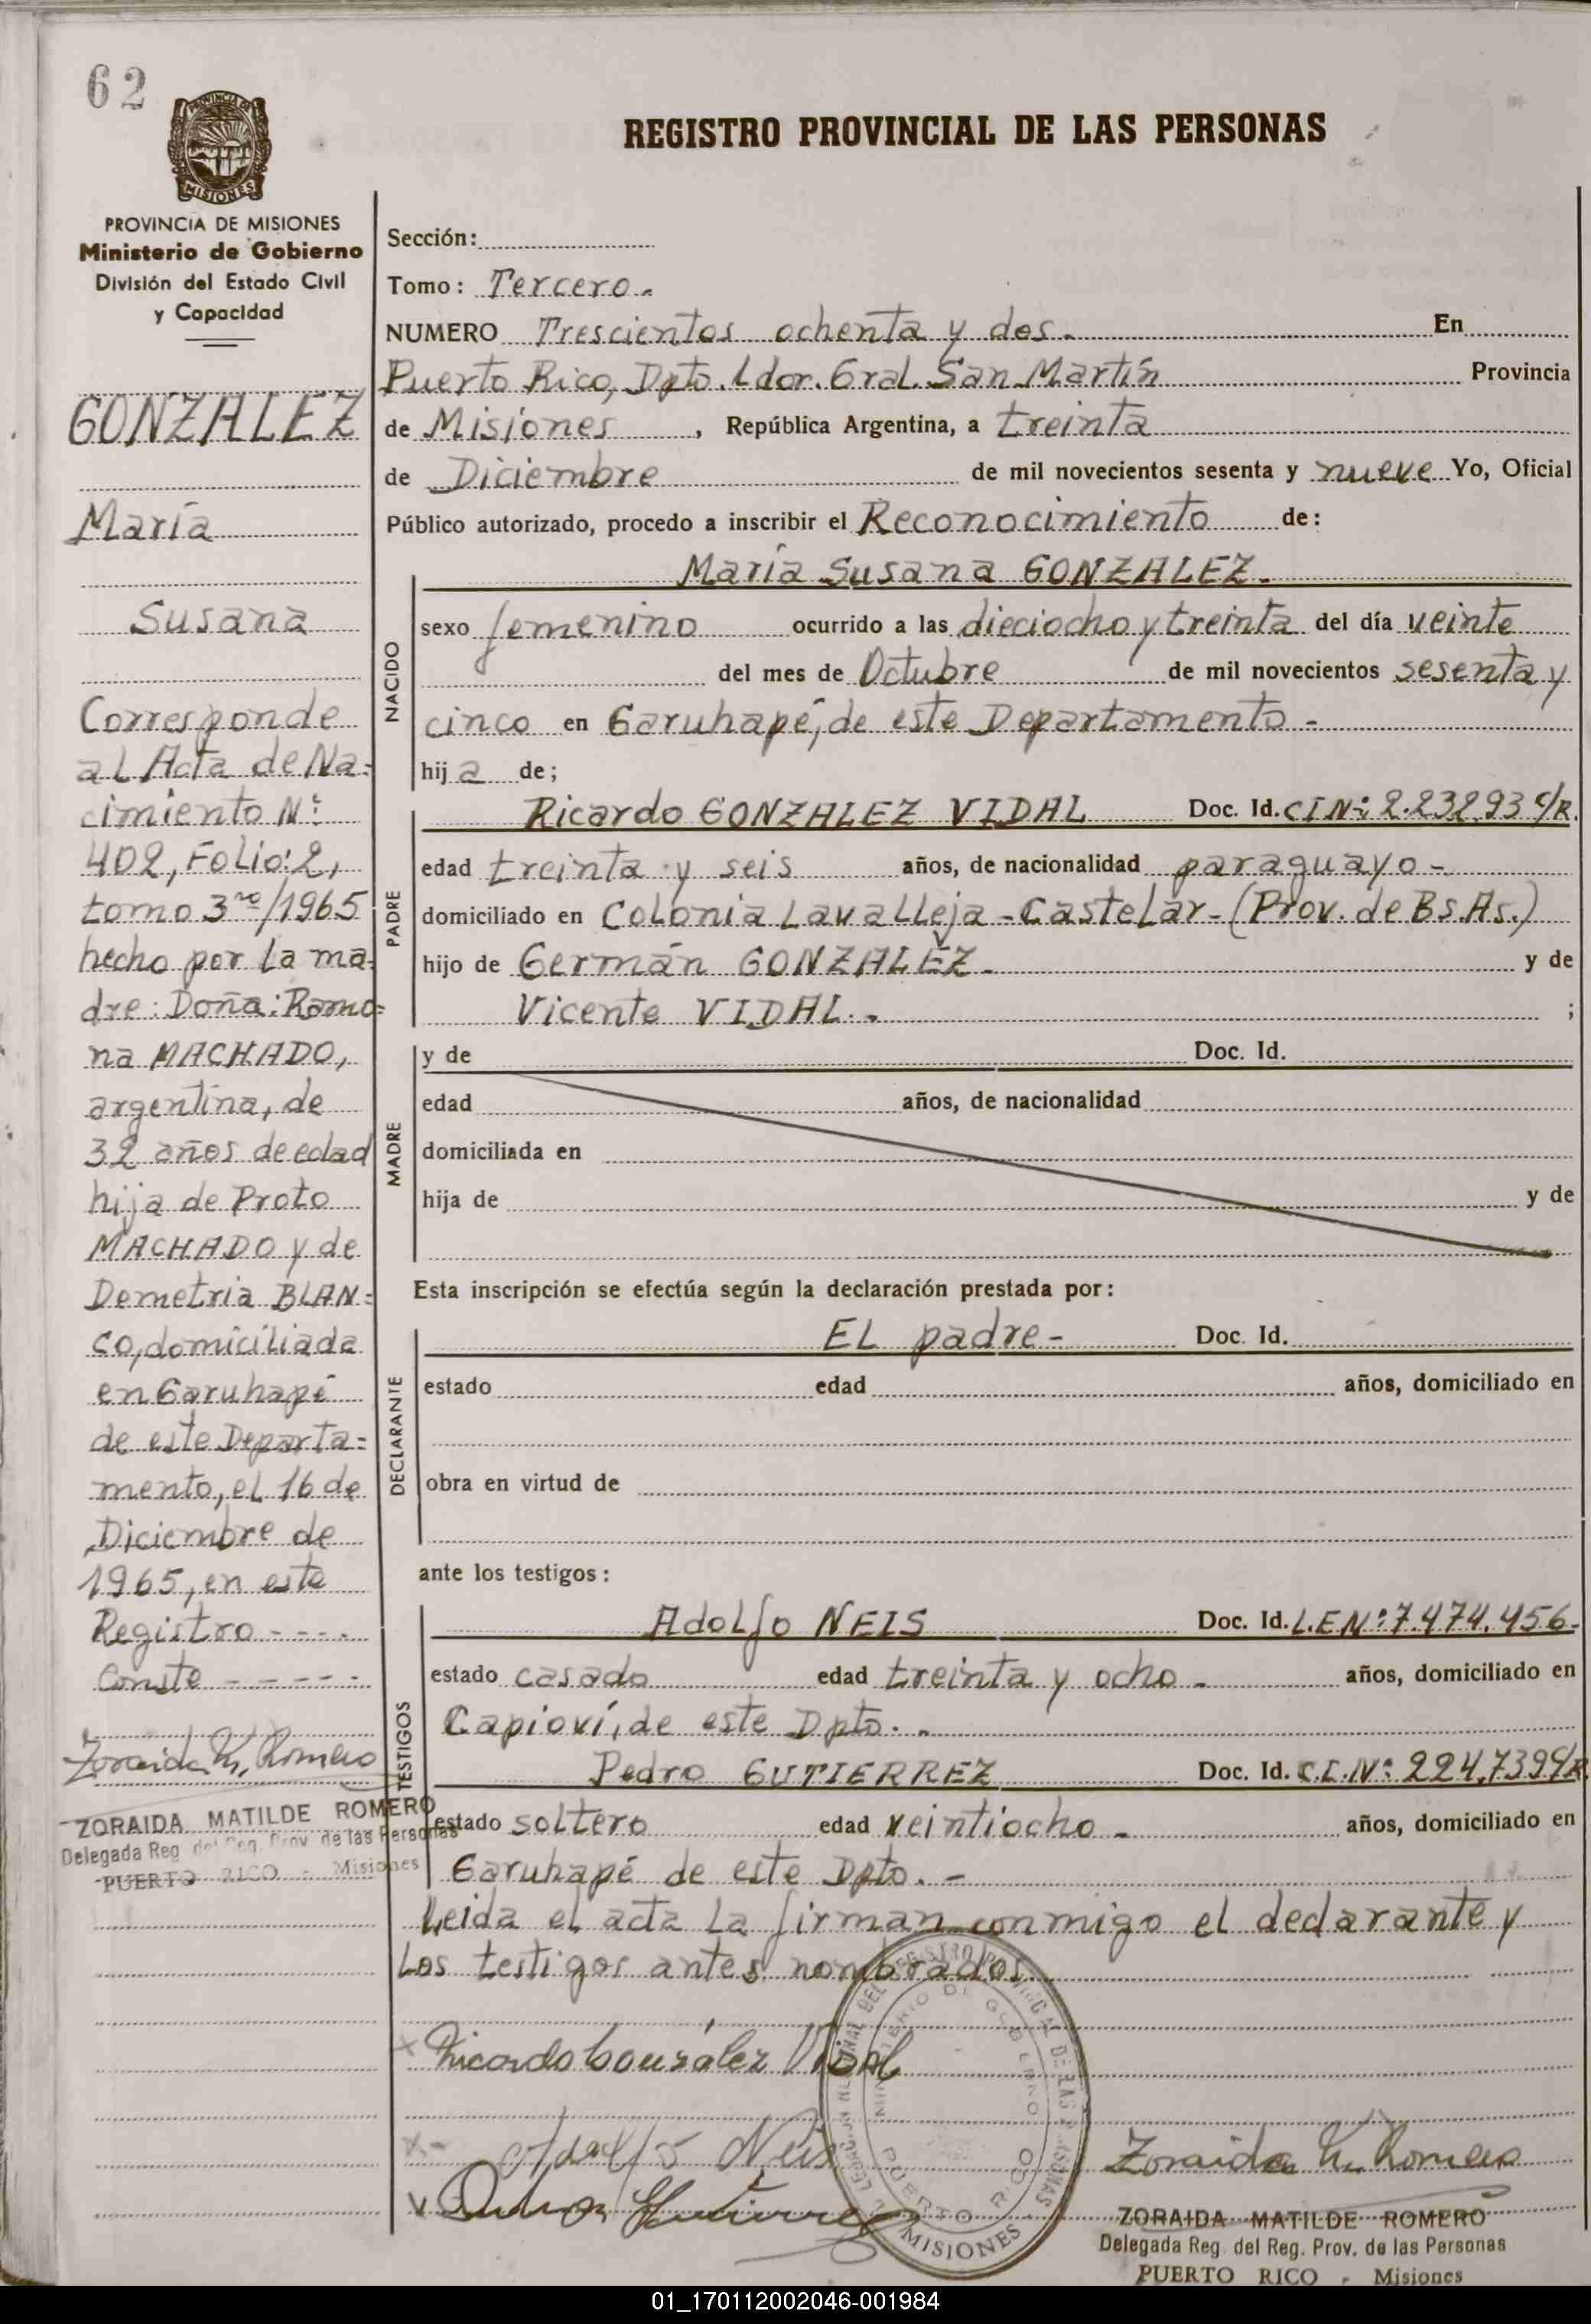 62
PROVINCIA DE
MISIONES
REGISTRO PROVINCIAL DE LAS PERSONAS
PROVINCIA DE MISIONES
Ministerio de Gobierno
División del Estado Civil
y Capacidad
GONZALEZ
María
Susana
Corresponde
al Acta de Na=
cimiento Nº
402, Folio:2,
tomo 3ro/1965
hecho por la ma=
dre: Doña: Ramo=
na MACHADO,
argentina, de
32 años de edad
hija de Proto
MACHADO y de
Demetria BLAN=
CO, domiciliada
en Garuhapé
de este Departa=
mento, el 16 de
Diciembre de
1965, en este
Registro - - - -
Conste - - - - -
Zoraida M. Romero
ZORAIDA MATILDE ROMERO
Delegada Reg. del Reg. Prov. de las Personas
PUERTO RICO - Misiones
Sección:
Tomo: Tercero.-
NUMERO Trescientos ochenta y dos.- En
Puerto Rico, Dpto. Ldor. Gral. San Martín Provincia
de Misiones, República Argentina, a treinta
de Diciembre de mil novecientos sesenta y nueve Yo, Oficial
Público autorizado, procedo a inscribir el Reconocimiento de:
NACIDO
María Susana GONZALEZ.-
sexo femenino ocurrido a las dieciocho y treinta del día veinte
del mes de Octubre de mil novecientos sesenta y
cinco en Garuhapé, de este Departamento.-
hija de;
PADRE
Ricardo GONZALEZ VIDAL Doc. Id. CI Nº: 2.232.93 C/R.
edad treinta y seis años, de nacionalidad paraguayo-
domiciliado en Colonia Lavalleja-Castelar-(Prov. de Bs.As.)
hijo de Germán GONZALEZ.- y de
Vicente VIDAL.- ;
MADRE
y de Doc. Id.
edad años, de nacionalidad
domiciliada en
hija de y de
Esta inscripción se efectúa según la declaración prestada por:
DECLARANTE
EL padre- Doc. Id.
estado edad años, domiciliado en
obra en virtud de
ante los testigos:
TESTIGOS
Adolfo NEIS Doc. Id. L.E Nº: 7.474.456.-
estado casado edad treinta y ocho.- años, domiciliado en
Capioví, de este Dpto..-
Pedro GUTIERREZ Doc. Id. C.I. Nº: 224.739 C/R
estado soltero edad veintiocho.- años, domiciliado en
Garuhapé de este Dpto.-
Leida el acta la firman conmigo el declarante y
los testigos antes nombrados.
Ricardo González Vidal
Adolfo Neis
Zoraida M. Romero
PUERTO RICO
MISIONES
ZORAIDA MATILDE ROMERO
Delegada Reg. del Reg. Prov. de las Personas
PUERTO RICO - Misiones
01_170112002046-001984